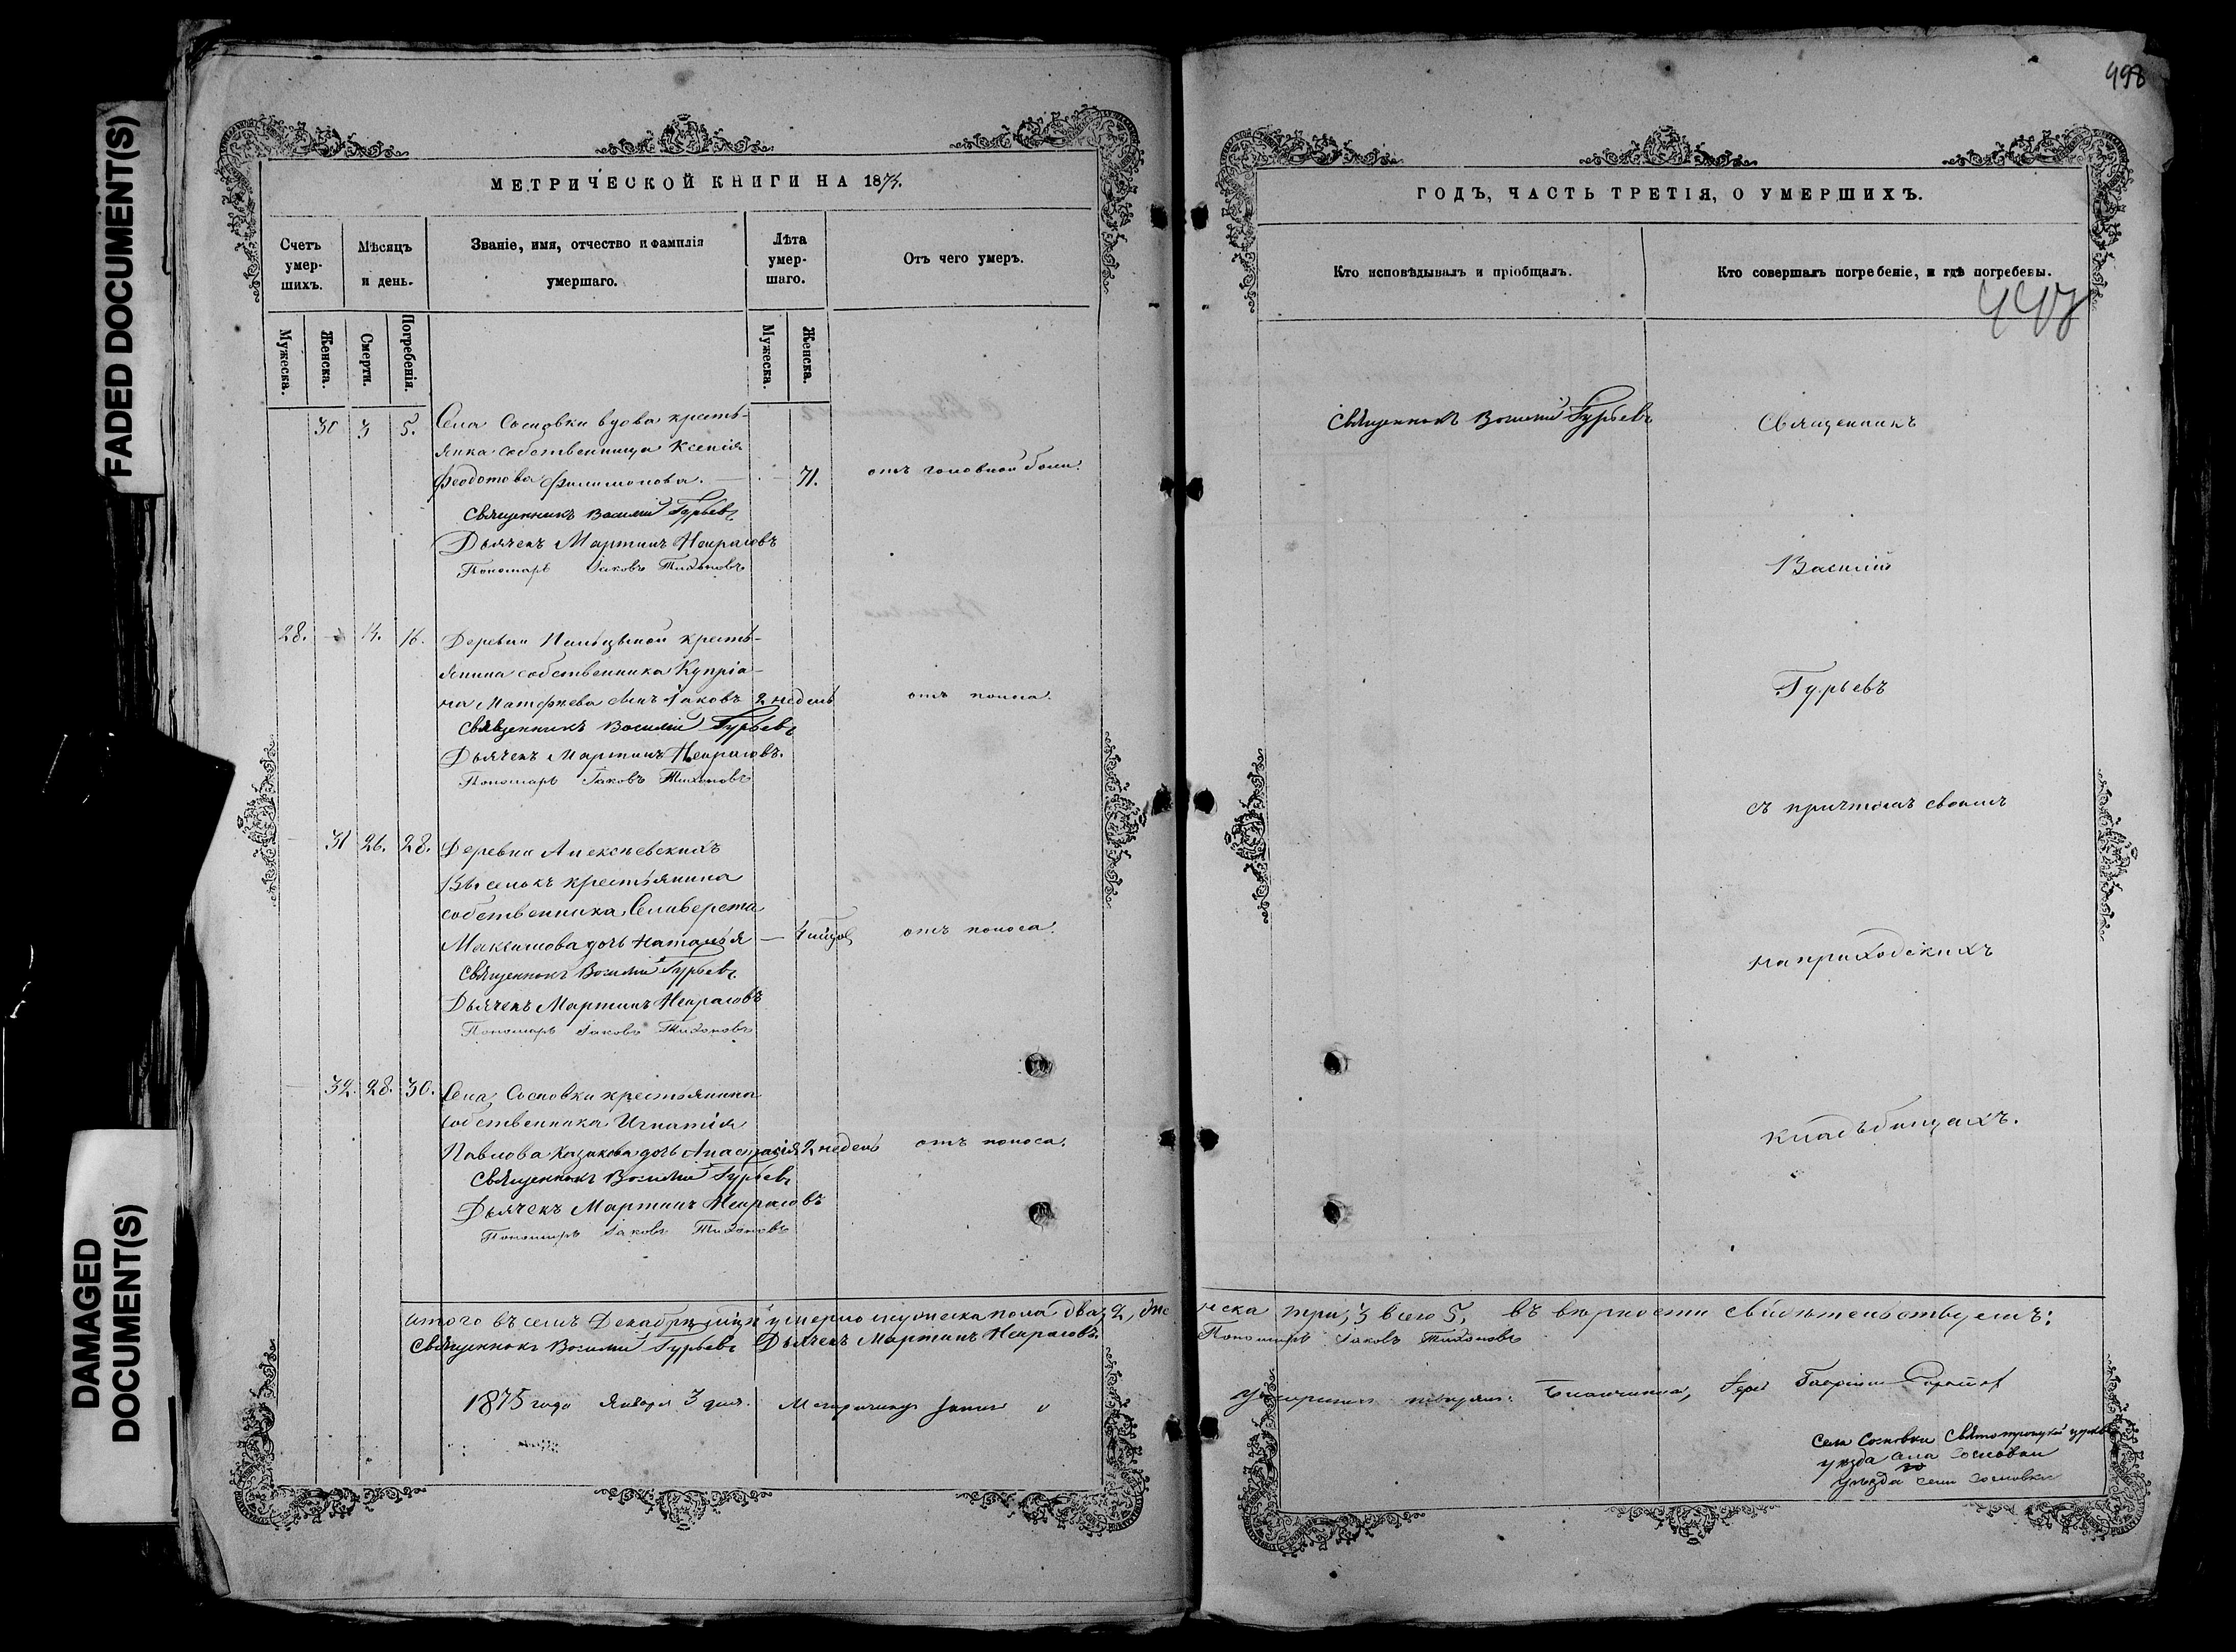 FADED DOCUMENT(S)
DAMAGED
DOCUMENT(S)
МЕТРИЧЕСКОЙ КНИГИ НА 1874.
Счетъ
умер-
шихъ.
Мѣсяцъ
и день.
Званіе, имя, отчество и фамилія
умершаго.
Лѣта
умер-
шаго.
Отъ чего умеръ.
Мужеска.
Женска.
Смерти.
Погребенія.
Мужеска.
Женска.
30 3 5. Села Сосновки вдова кресть-
янка собственница Ксенія
Феодотова Филимонова. — 71. отъ головной боли.
Священникъ Василій Гурьевъ
Дьячекъ Мартинъ Некрасовъ
Пономарь Іаковъ Тихоновъ
28. 14. 16. Деревни кресть-
янина собственника Купріа-
на Матфѣева сынъ Іаковъ 2 недель отъ поноса.
Священникъ Василій Гурьевъ
Дьячекъ Мартинъ Некрасовъ.
Пономарь Іаковъ Тихоновъ
31 26. 28. Деревни Алексѣевскихъ
Выселокъ крестьянина
собственника Селиверста
Максимова дочь Наталья — отъ поноса.
Священникъ Василій Гурьевъ
Дьячекъ Мартинъ Некрасовъ
Пономарь Іаковъ Тихоновъ
32. 28. 30. Села Сосновки крестьянина
собственника Игнатія
Павлова Казакова дочь Анастасія 2 недель отъ поноса.
Священникъ Василій Гурьевъ
Дьячекъ Мартинъ Некрасовъ
Пономарь Іаковъ Тихоновъ
итого въ семъ Декабрѣ умерло мужеска пола два, 2, же
Священникъ Василій Гурьевъ Дьячекъ Мартинъ Некрасовъ
1875 года Января 3 дня.
498
ГОДЪ, ЧАСТЬ ТРЕТІЯ, О УМЕРШИХЪ.
Кто исповѣдывалъ и пріобщалъ.
Кто совершалъ погребеніе, и гдѣ погребены.
Священникъ Василій Гурьевъ
Священникъ
Василій
Гурьевъ
съ причтомъ своимъ
на приходскихъ
кладъбищахъ.
нска три, 3 всего 5, въ вѣрности свидѣтельствуемъ:
Пономарь Іаковъ Тихоновъ
Села Сосновки
уѣзда села Сосновки
уѣзда села Сосновки